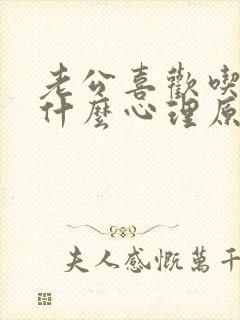 老公喜歡喫
什麼心理原
夫人感慨萬千